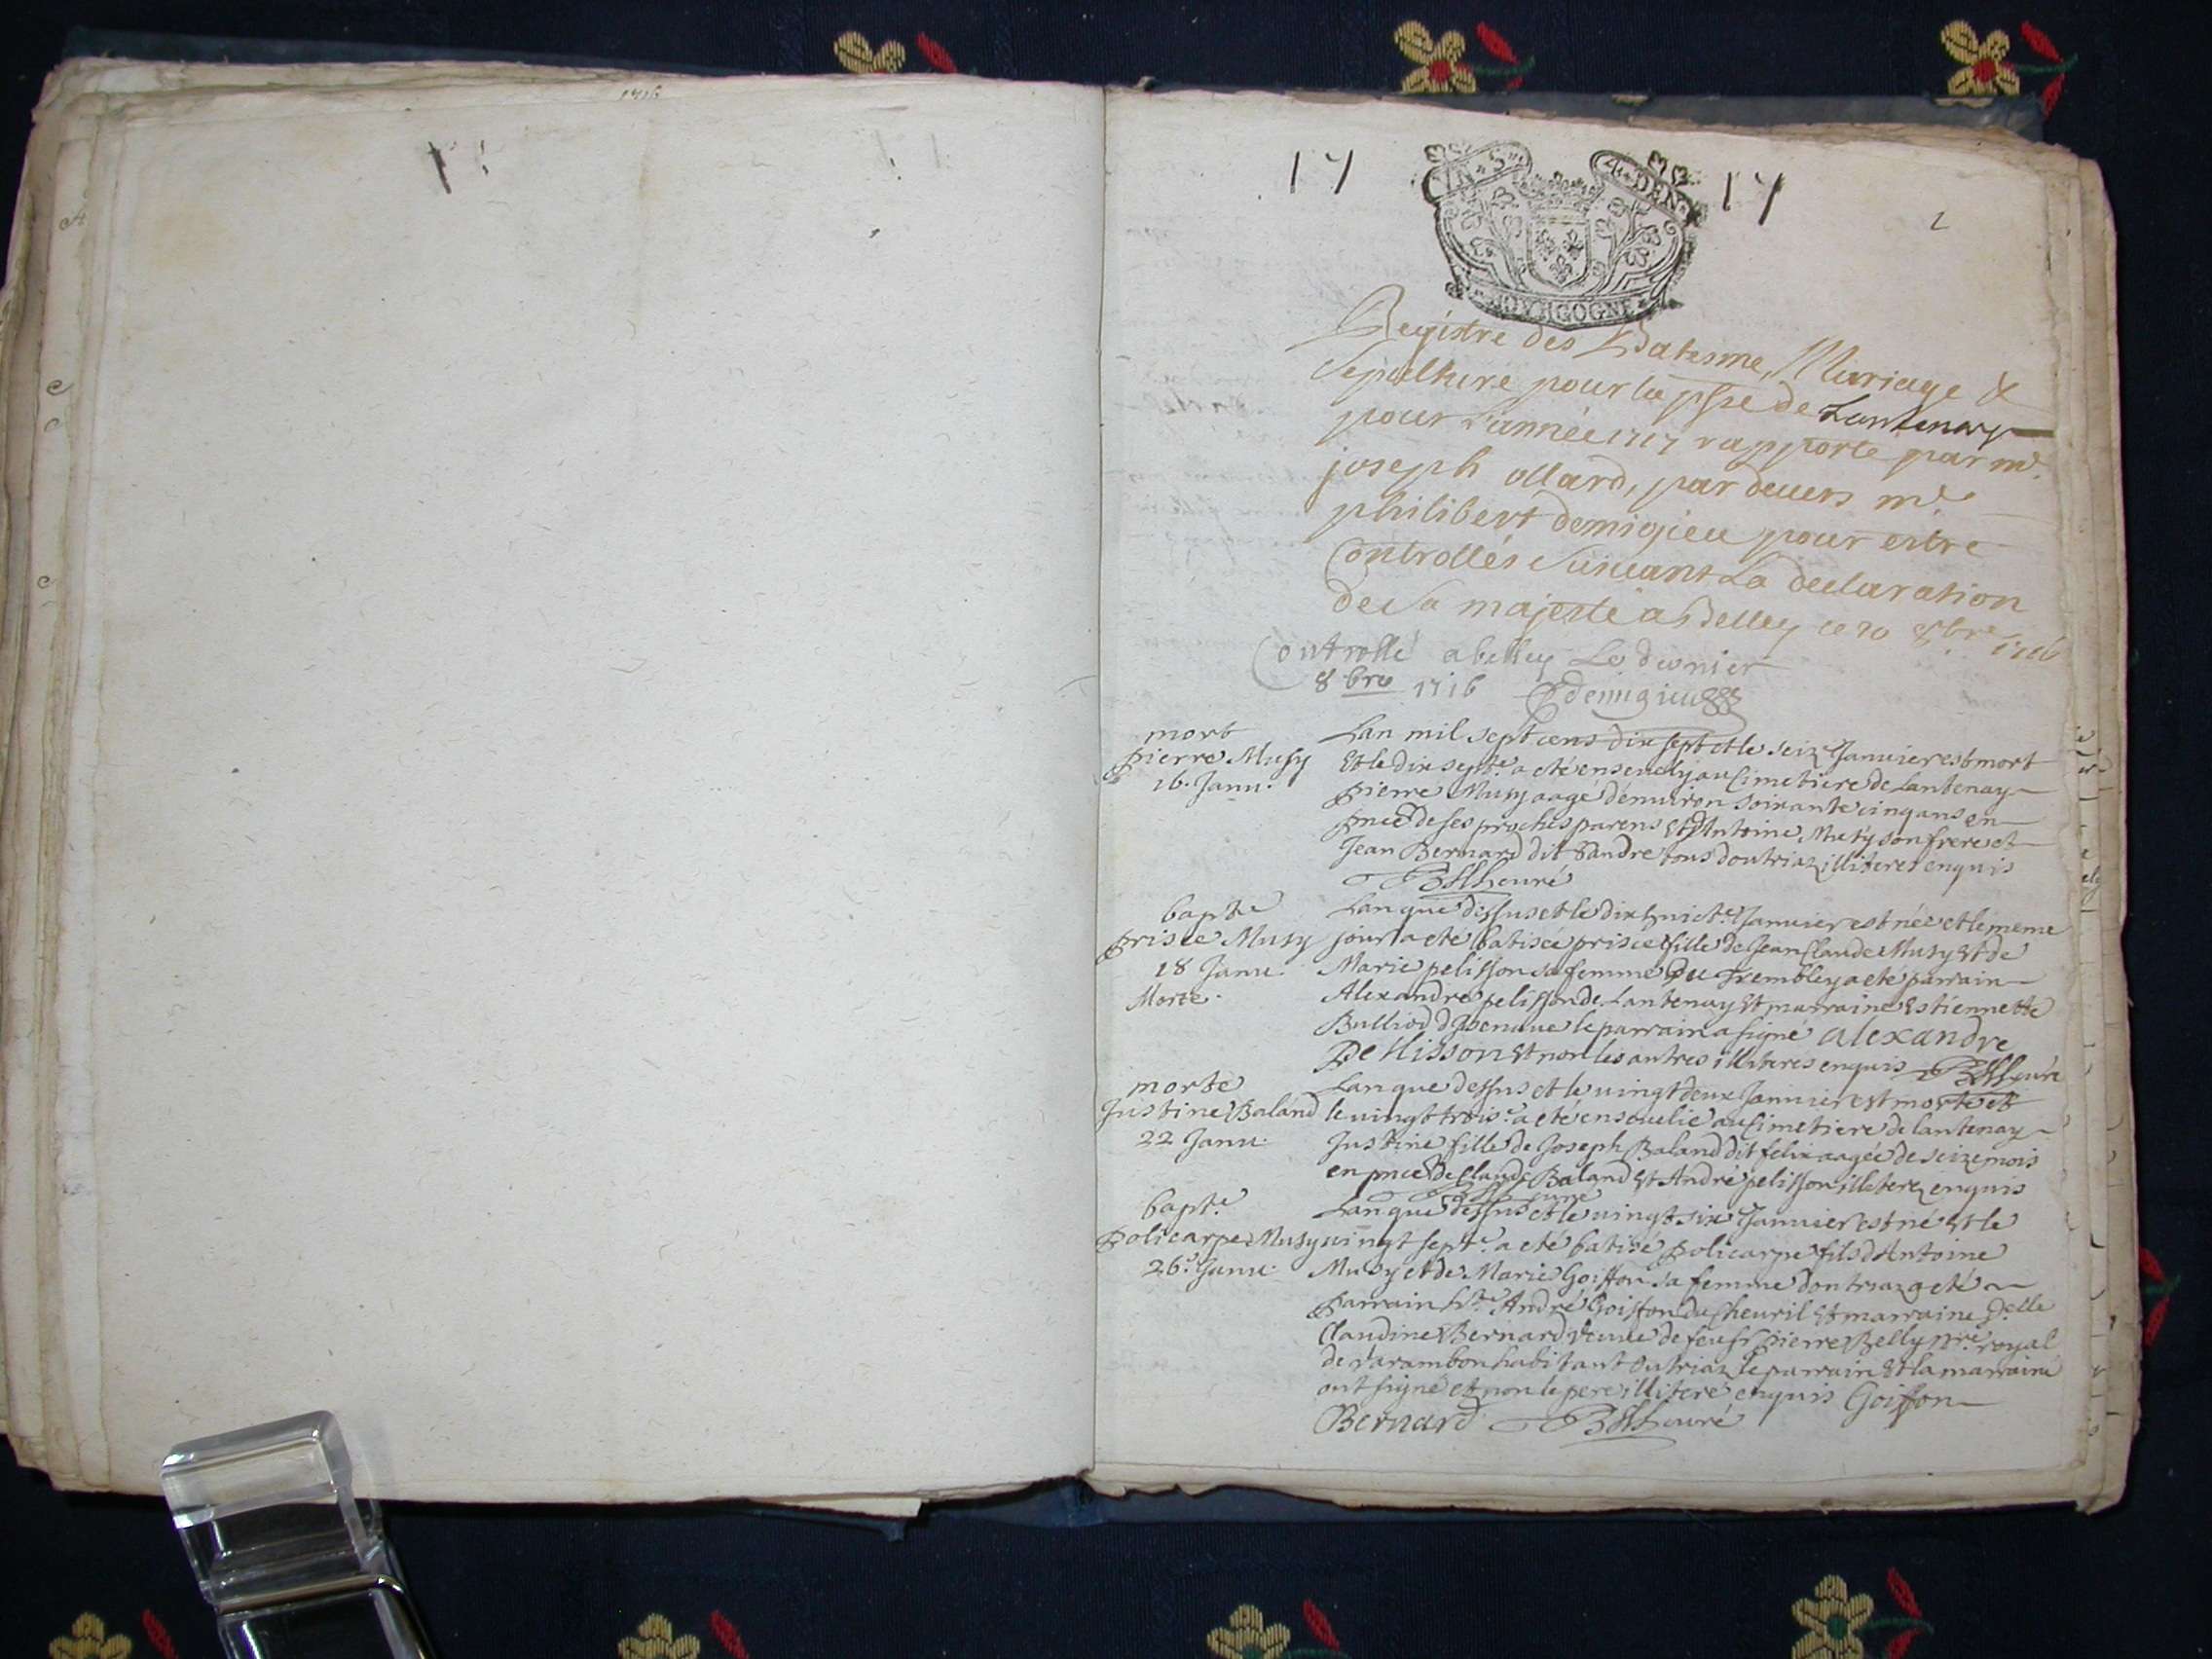 1716
17
17
2
VN·S·
4·DEN·
BOVRGOGNE
Registre des Batesme, Mariage &
Sepulture pour la psse de Lantenay
pour l'année 1717 rapporté par mr.
joseph ollard, par deuers mr.
philibert demigieu pour estre
Controllés Suiuant La declaration
de sa majesté a Belley ce 30 8bre 1716
Controllé a belley Le dernier
8bre 1716 demigieu
mort
pierre Musy
16. Janu.
Lan mil sept cens dix sept et le seize Januier est mort
Et le dix septe. a eté enseuely au Cimetiere de Lantenay
pierre Musy aagé d'enuiron soixante cinq ans en
pnce de ses proches parens Et d'Antoine Musy son frere et
Jean Bernard dit Tandre tous doutriaz illiteres enquis
curé
bapte
prisce Musy
18 Janu.
Morte.
Lan que dessus et le dixhuicte Januier est née et le meme
jour a eté batisée prisce fille de Jean Claude Musy Et de
Marie pelisson sa femme Du Trembley a eté parrain
Alexandre pelisson de Lantenay Et marraine Estiennette
Bulliod d'Jzenaue le parrain a signé alexandre
Pellisson Et non les autres illiteres enquis curé
morte
Justine Baland
22 Janu.
Lan que dessus et le uingt deux Januier est morte et
le uingt trois.e a eté enseuelie au simetiere de lantenay
Justine fille de Joseph Baland dit felix aagée de seize mois
en pnce de Claude Baland Et André pelisson illiterez enquis
curé
bapt.e
Policarpe Musy
26.e Janu.
Lan que dessus et le uingt six Januier est né Et le
uingt sept.e a eté batisé policarpe fils d'Antoine
Musy et de Marie Goiffon sa femme doutriaz a eté
parrain André Goiffon du Cheuril Et marraine D.elle
Claudine Bernard Veuue de feu sr pierre Belly royal
de Varambon habitant Outriaz le parrain Et la marraine
ont signé et non le pere illiteré enquis Goiffon
Bernard curé